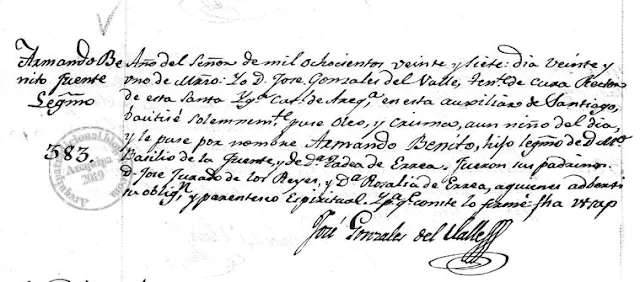 Armando Be
nito fuente
Legmo
383.
Año del Señor de mil ochocientos veinte y siete: dia veinte y
uno de Marzo: Yo D. Jose Gonzales del Valle, tente. de cura Rector
de esta Santa Yga. Catl. de Areqa. en esta auxiliar de Santiago,
bautisé solemnemte. puse Oleo, y Crisma, a un niño del dia,
y le puse por nombre Armando Benito, hijo legmo de D.
Basilio de la Fuente, y de Da. Tadea de Errea. Fueron sus padrinos
D. Jose Jurado de los Reyes, y Da. Rosalia de Errea, a quienes adverti
su oblign. y parentesco Espiritual. Y pa. qe. conste lo firmé fha ut sup
José Gonzales del Valle
Arequipa
2019